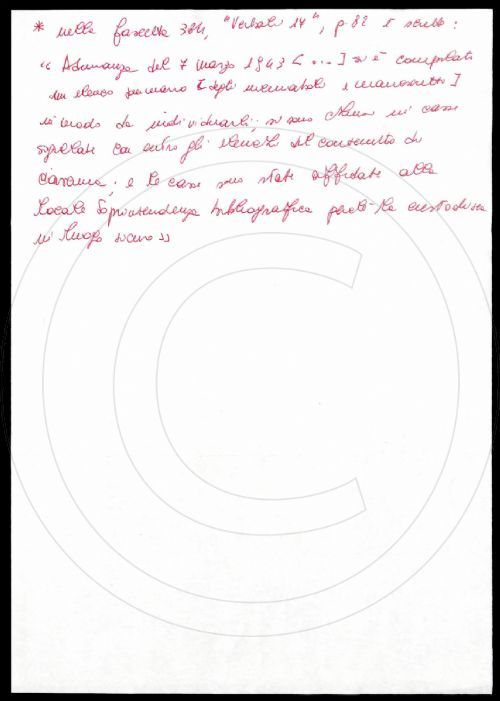 * nella fascetta 384, "Verbali 14", p. 82 è scritto:
"Adunanza del 7 marzo 1943 [...] si è compilato
un elenco sommario [degli incunaboli e manoscritti]
in modo da individuarli; si sono chiusi in casse
sigillate con entro gli elenchi del contenuto di
ciascuna; e le casse sono state affidate alla
locale Soprintendenza bibliografica perché le custodisca
in luogo sicuro"